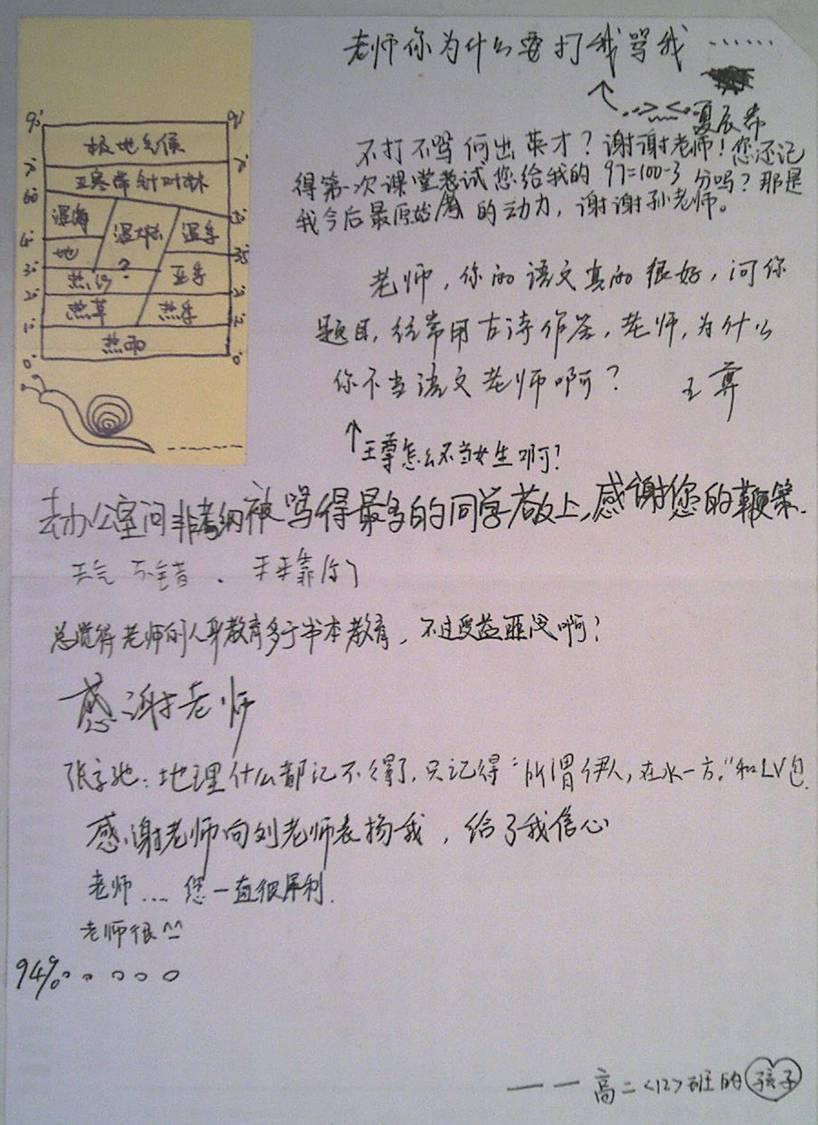 老师你为什么要打我骂我……
夏辰希
不打不骂何出英才？谢谢老师！您还记
得第一次课堂考试您给我的97=100-3分吗？那是
我今后最原始的动力，谢谢孙老师。
90° 90°
极地气候
70° 70°
亚寒带针叶林
60°
温海 温大陆 温季
40° 35°
地 ? 亚季
30°
热沙
20°
热草 热季
10°
热雨
0° 0°
老师，你的语文真的很好，问你
题目，经常用古诗作答，老师，为什么
你不当语文老师啊？ 王尊
王尊怎么不当女生啊？
去办公室问非考纲被骂得最多的同学敬上，感谢您的鞭策.
天气不错、天天靠你
总觉得老师的人身教育多于书本教育，不过受益匪浅啊！
感谢老师
地理什么都记不得了，只记得“所谓伊人，在水一方。”和LV包.
感谢老师向刘老师表扬我，给了我信心
老师....您一直很犀利.
老师很^^
94%
——高二<12>班的孩子